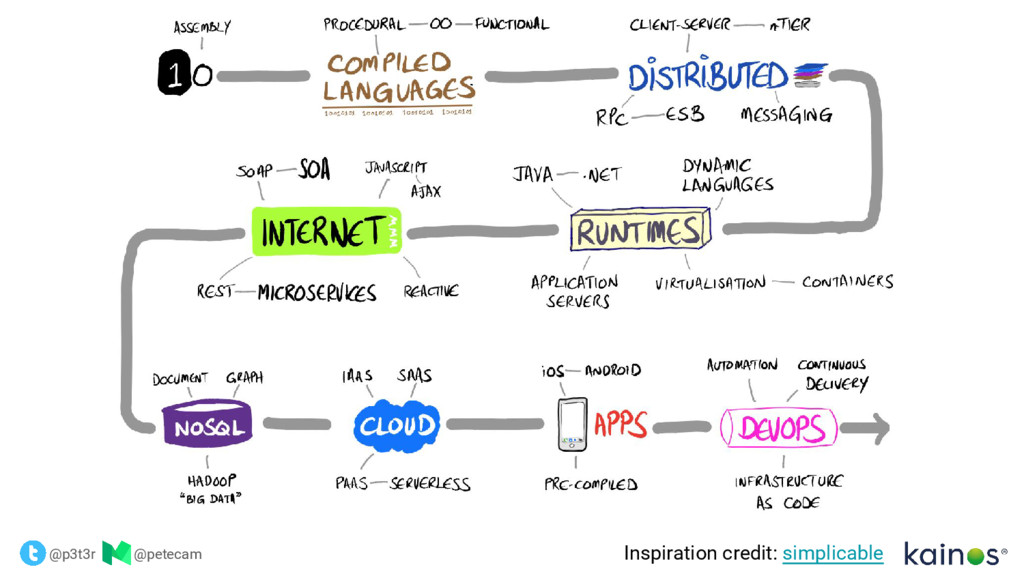 ASSEMBLY
PROCEDURAL — OO — FUNCTIONAL
CLIENT-SERVER — n-TIER
10
COMPILED
LANGUAGES
DISTRIBUTED
RPC — ESB
MESSAGING
SOAP — SOA
JAVASCRIPT
AJAX
JAVA — .NET
DYNAMIC
LANGUAGES
INTERNET
RUNTIMES
REST — MICROSERVICES
REACTIVE
APPLICATION
SERVERS
VIRTUALISATION — CONTAINERS
DOCUMENT
GRAPH
IAAS
SAAS
iOS — ANDROID
AUTOMATION
CONTINUOUS
DELIVERY
NOSQL
CLOUD
APPS
DEVOPS
HADOOP
"BIG DATA"
PAAS — SERVERLESS
PRE-COMPILED
INFRASTRUCTURE
AS CODE
@p3t3r
@petecam
Inspiration credit: simplicable
kainos®